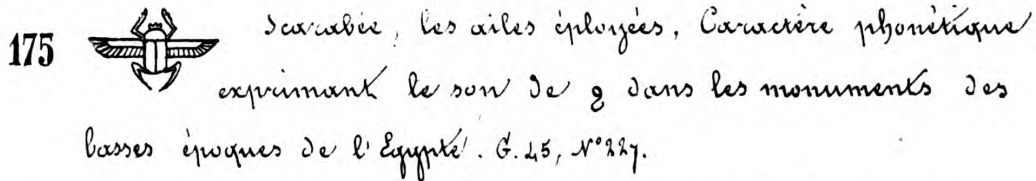 175 Scarabée, les ailes éployées, Caractère phonétique
exprimant le son de ϩ dans les monuments des
basses époques de l'Egypte. G. 45, N° 227.